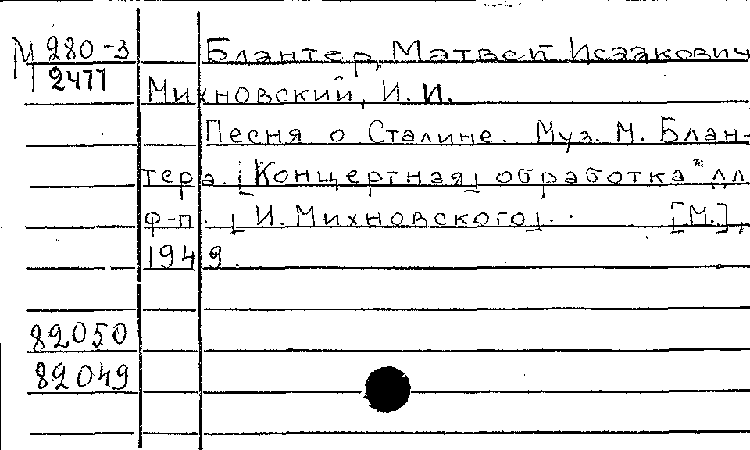 М 280-3 Блантер, Матвей Исаакович
2477 Михновский, И. И.
Песня о Сталине. Муз. М. Блан-
тера. [Концертная] обработка" дл
ф-п. [И. Михновского]. . [М.],
1949.
82050
82049